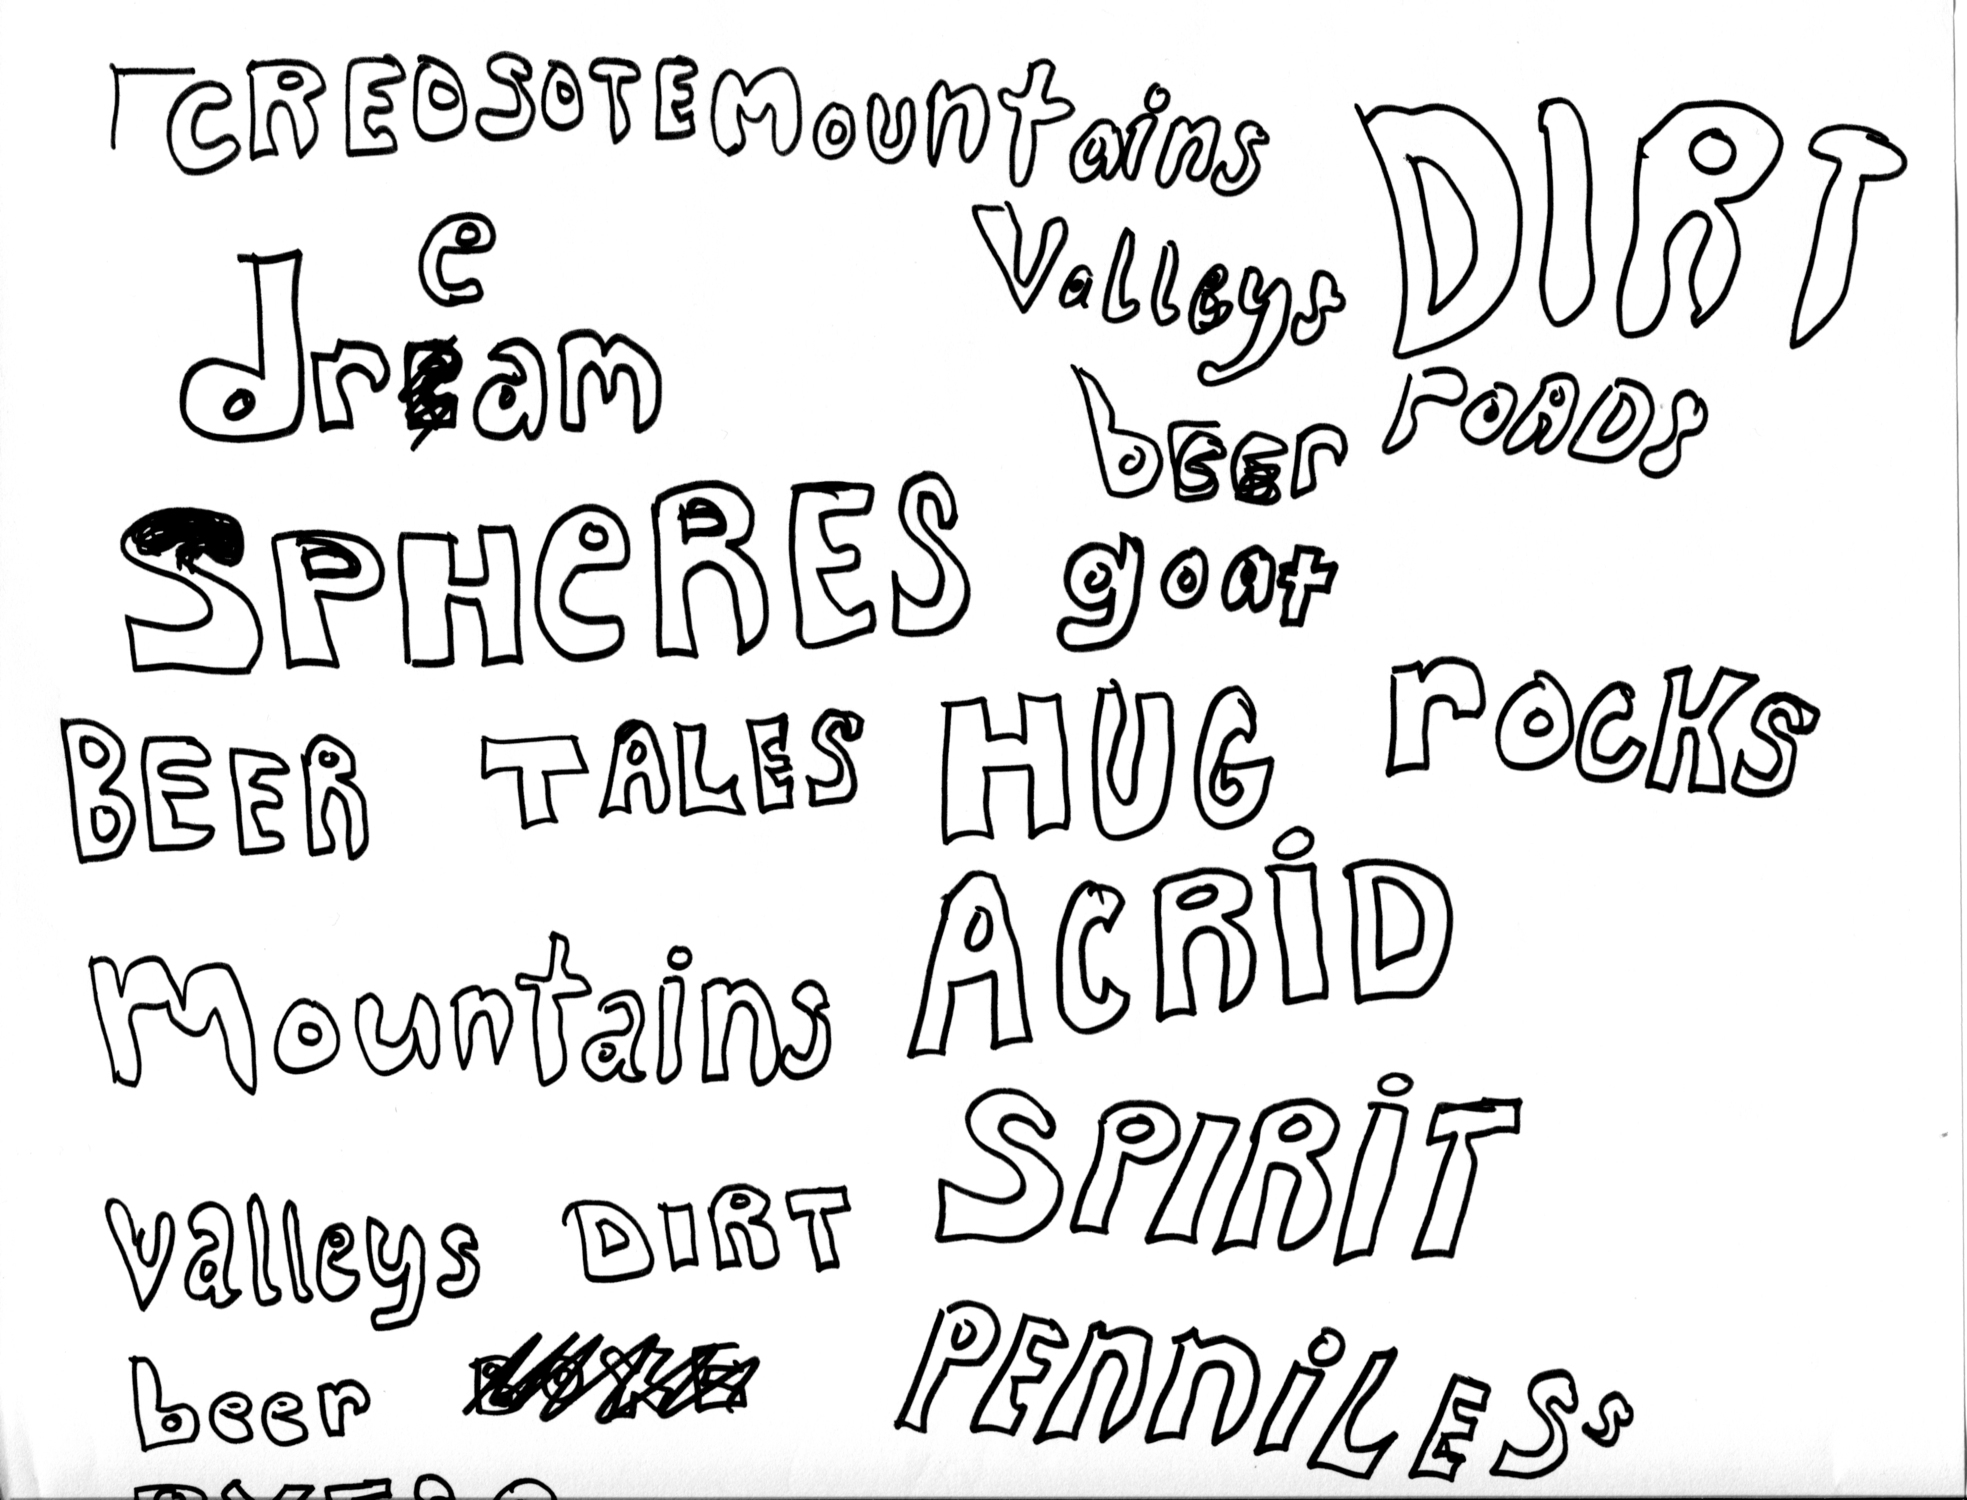 CREOSOTE Mountains
DIRT
Valleys
e
dream
roADS
bEEr
SPHeRES
goat
BEER TALES
HUG
rocKS
ACRiD
Mountains
SPIRiT
valleys DIRT
PEnniLESs
beer